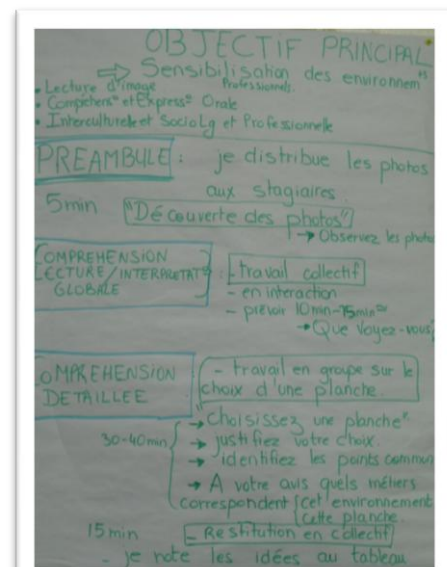 OBJECTIF PRINCIPAL
⇒ Sensibilisation des environnem^ts
Professionnels.
• Lecture d'image
• Compéhens° et Express° Orale
• Interculturelle et SocioLg et Professionnelle
PREAMBULE : je distribue les photos
aux stagiaires.
5min "Découverte des photos"
→ Observez les photo
COMPREHENSION
LECTURE/INTERPRETAT°
GLOBALE
: - travail collectif
- en interaction
- prévoir 10min-15min
→ Que voyez-vous?
COMPREHENSION
DETAILLEE
: - travail en groupe sur le
choix d'une planche.
"→ Choisissez une planche"
30-40min → justifiez votre choix.
→ identifiez les points commun
→ A votre avis quels métiers
correspondent cet environnement
cette planche.
15 min - Restitution en collectif
- je note les idées au tableau